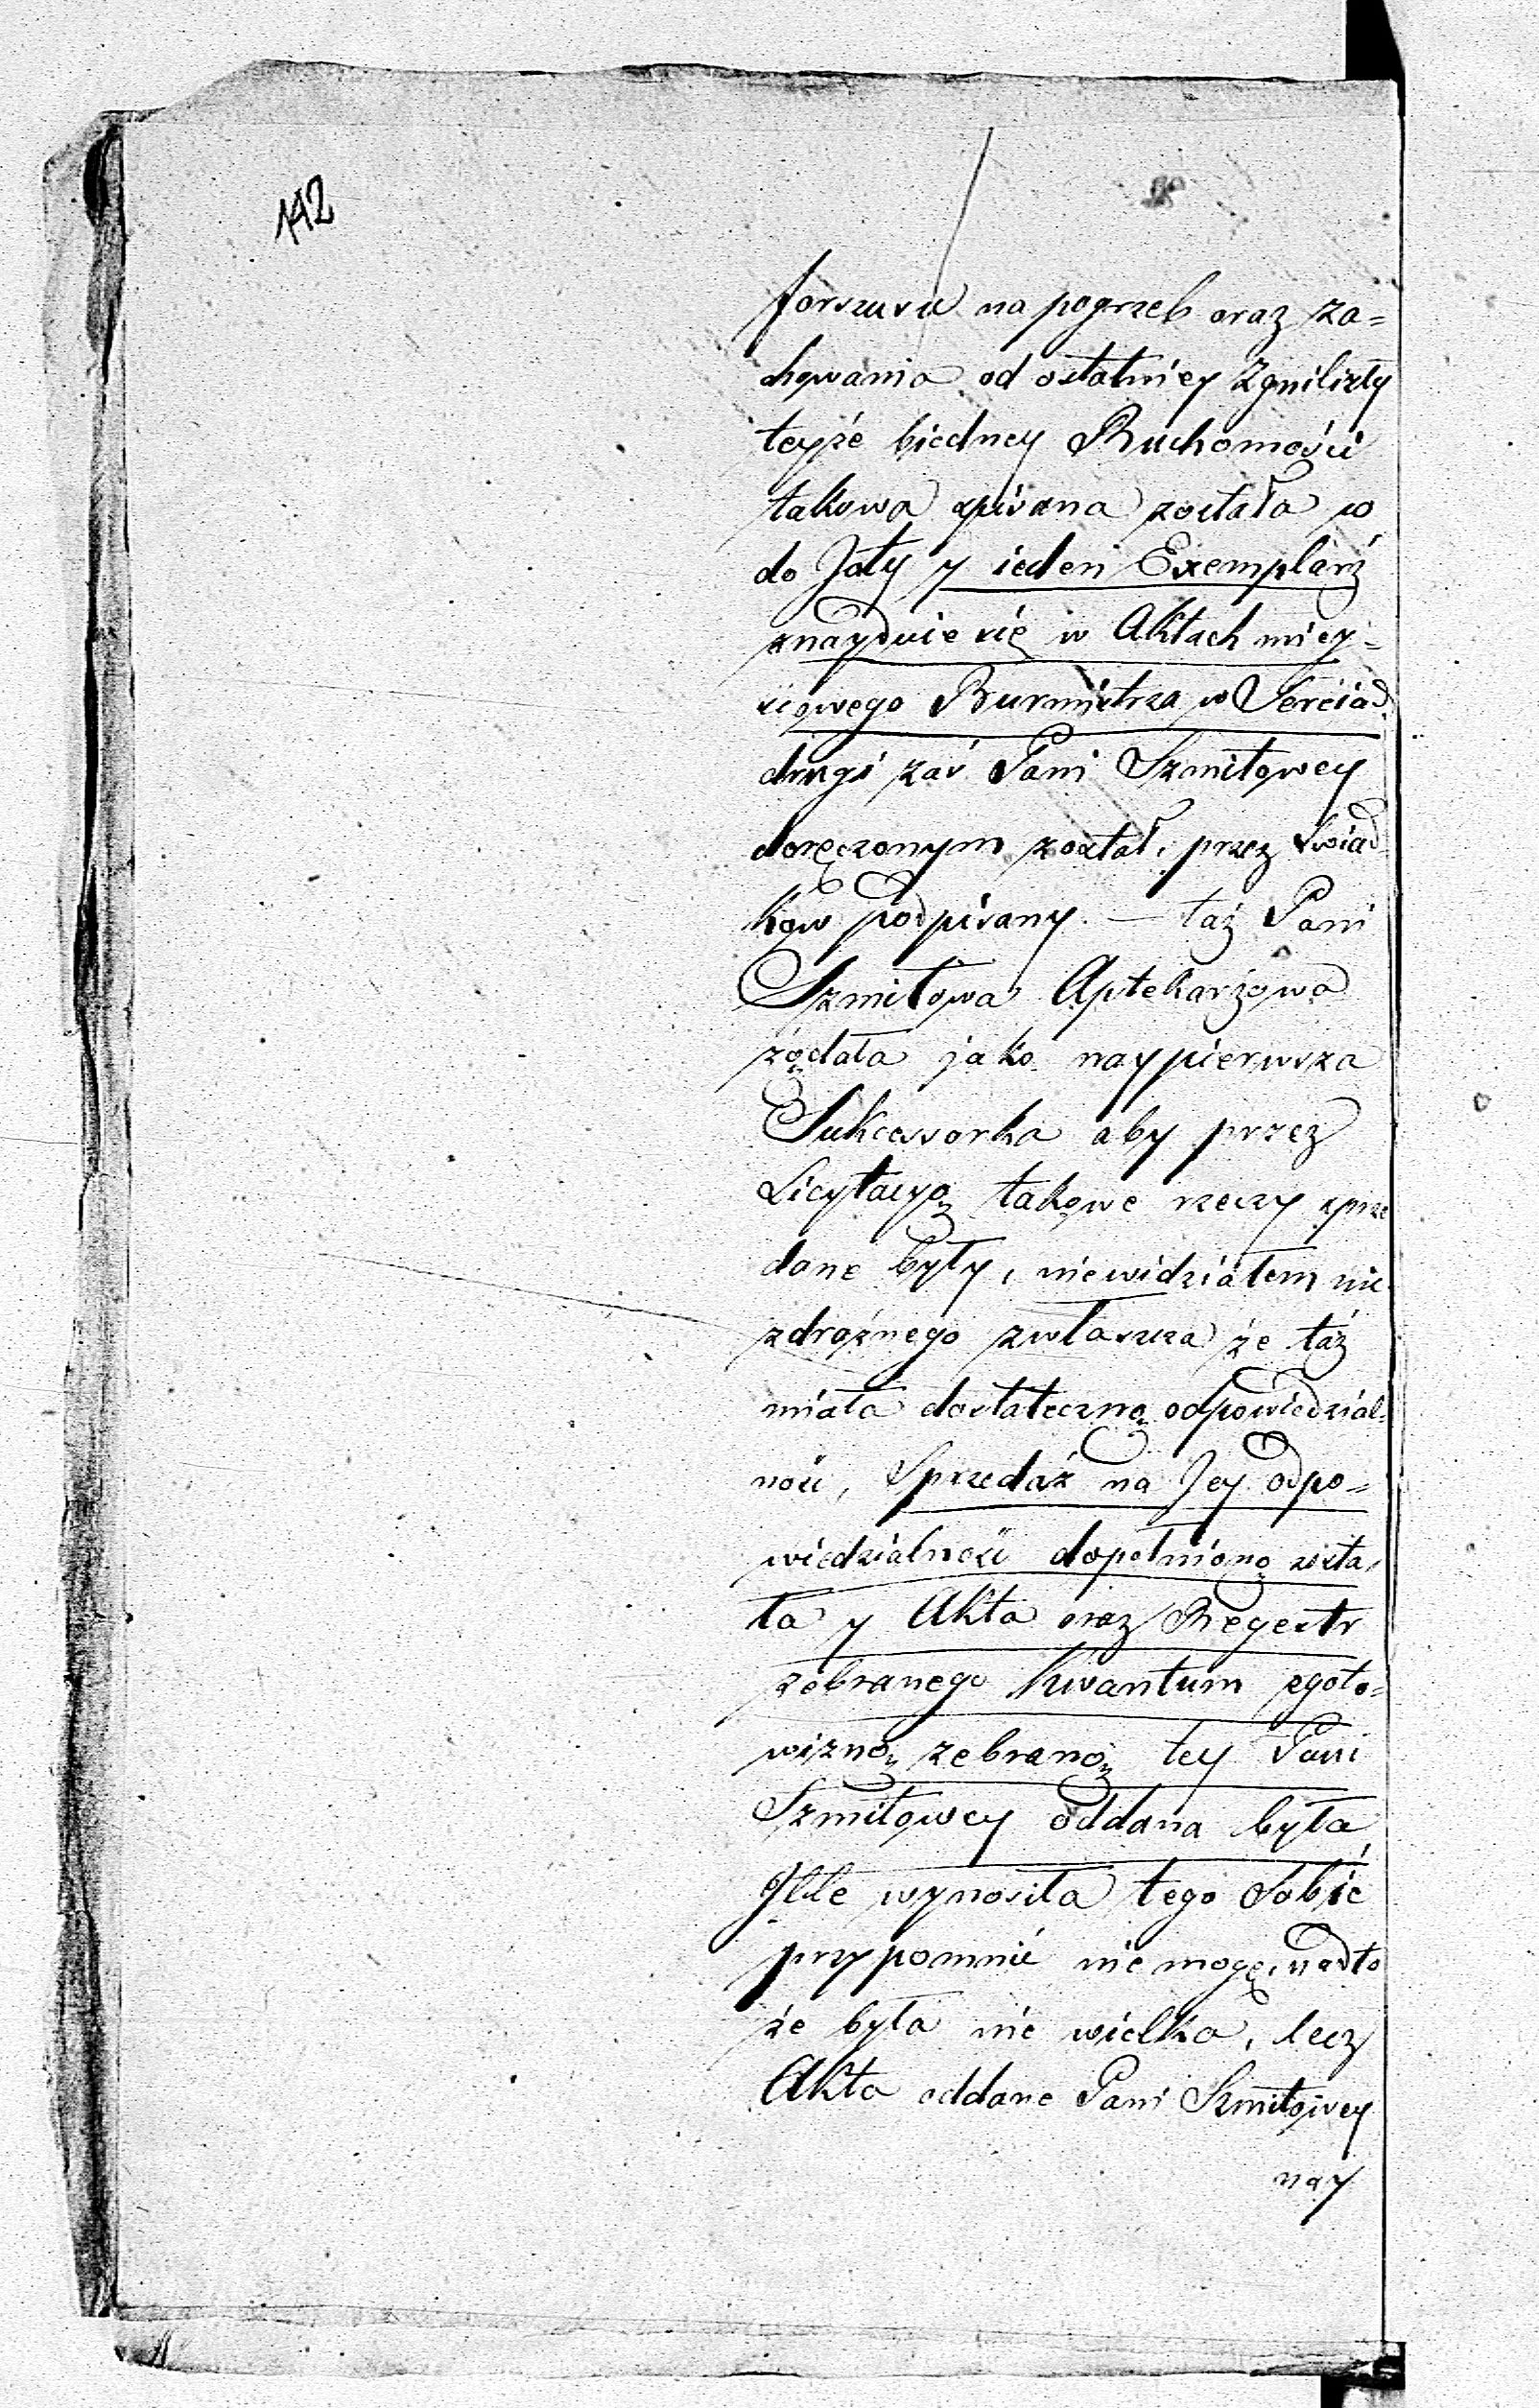 142
forszusu na pogrzeb oraz za=
chowania od ostatniey Zgnilizty
teyże biedney Ruchomości
takowa spisana została w
do Jaty y ieden Exemplarz
znayduie się w Aktach miey=
scowego Burmistrza w
drugi zaś Pani Szmitowey
doręczonym został, przez Swiad
kow podpisany. — taż Pani
Szmitowa Aptekarżowa
żądała jako naypierwsza
Sukcessorka aby przez
Licytacyą takowe rzeczy sprze
dane były, niewidziałem nic
zdrożnego zwłaszcza że taż
miała dostateczną odpowiedzial=
ność, Sprzedaż na Jey odpo=
wiedzialność dopełnioną zosta,
ła y Akta oraz Regestr
zebranego Kwantum zgoto=
wizną zebraną tey Pani
Szmitowey oddana była
Jlle wynosiła tego Sobie
przypomnić nie mogę, nadto
że była nie wielka, lecz
Akta oddane Pani Szmitowey
nay